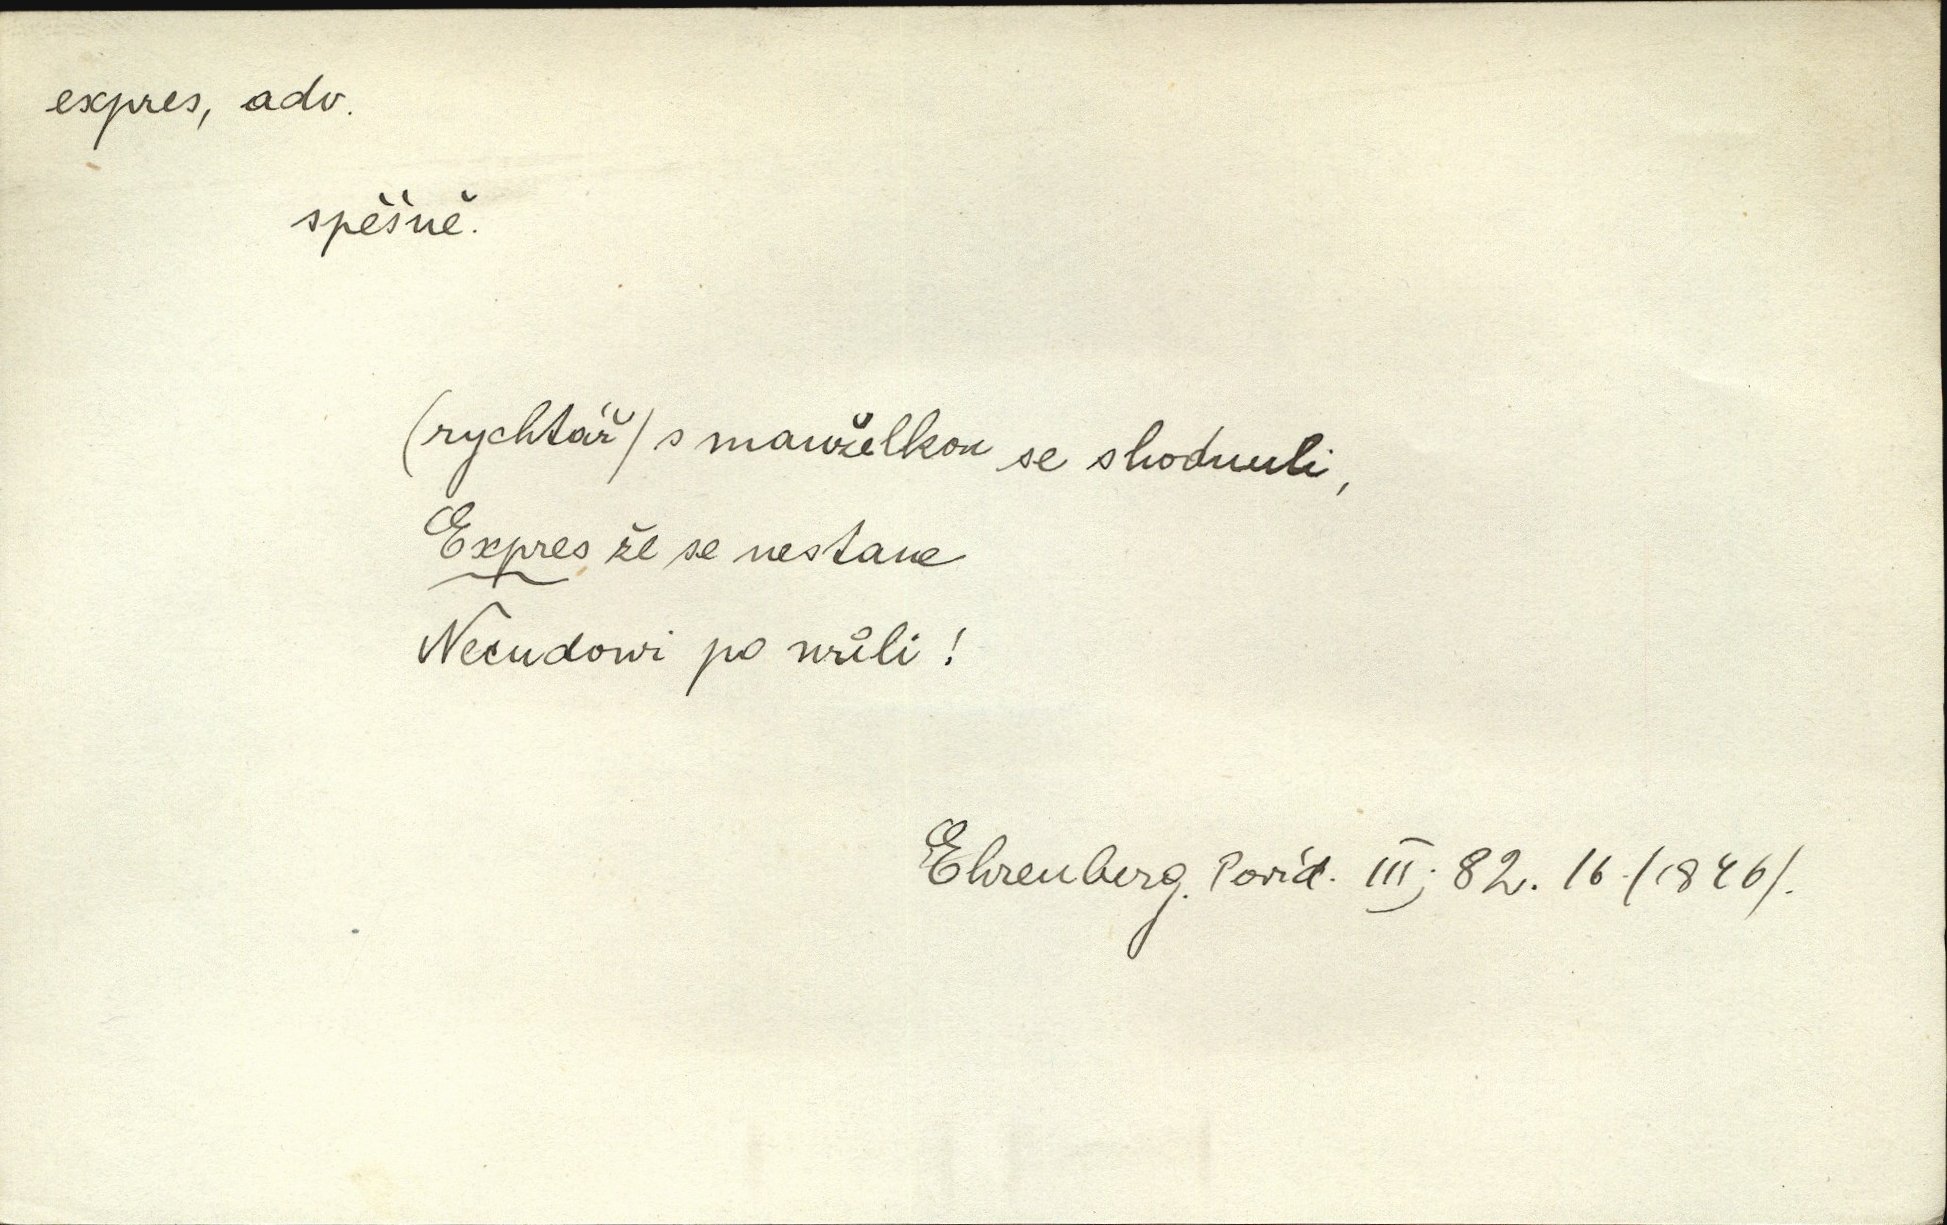 expres, adv.
spěšně.
(rychtář) s manželkou se shodnuli,
Expres že se nestane
Necudowi po wůli!
Ehrenberg. Povíd. III; 82. 16 (1846).